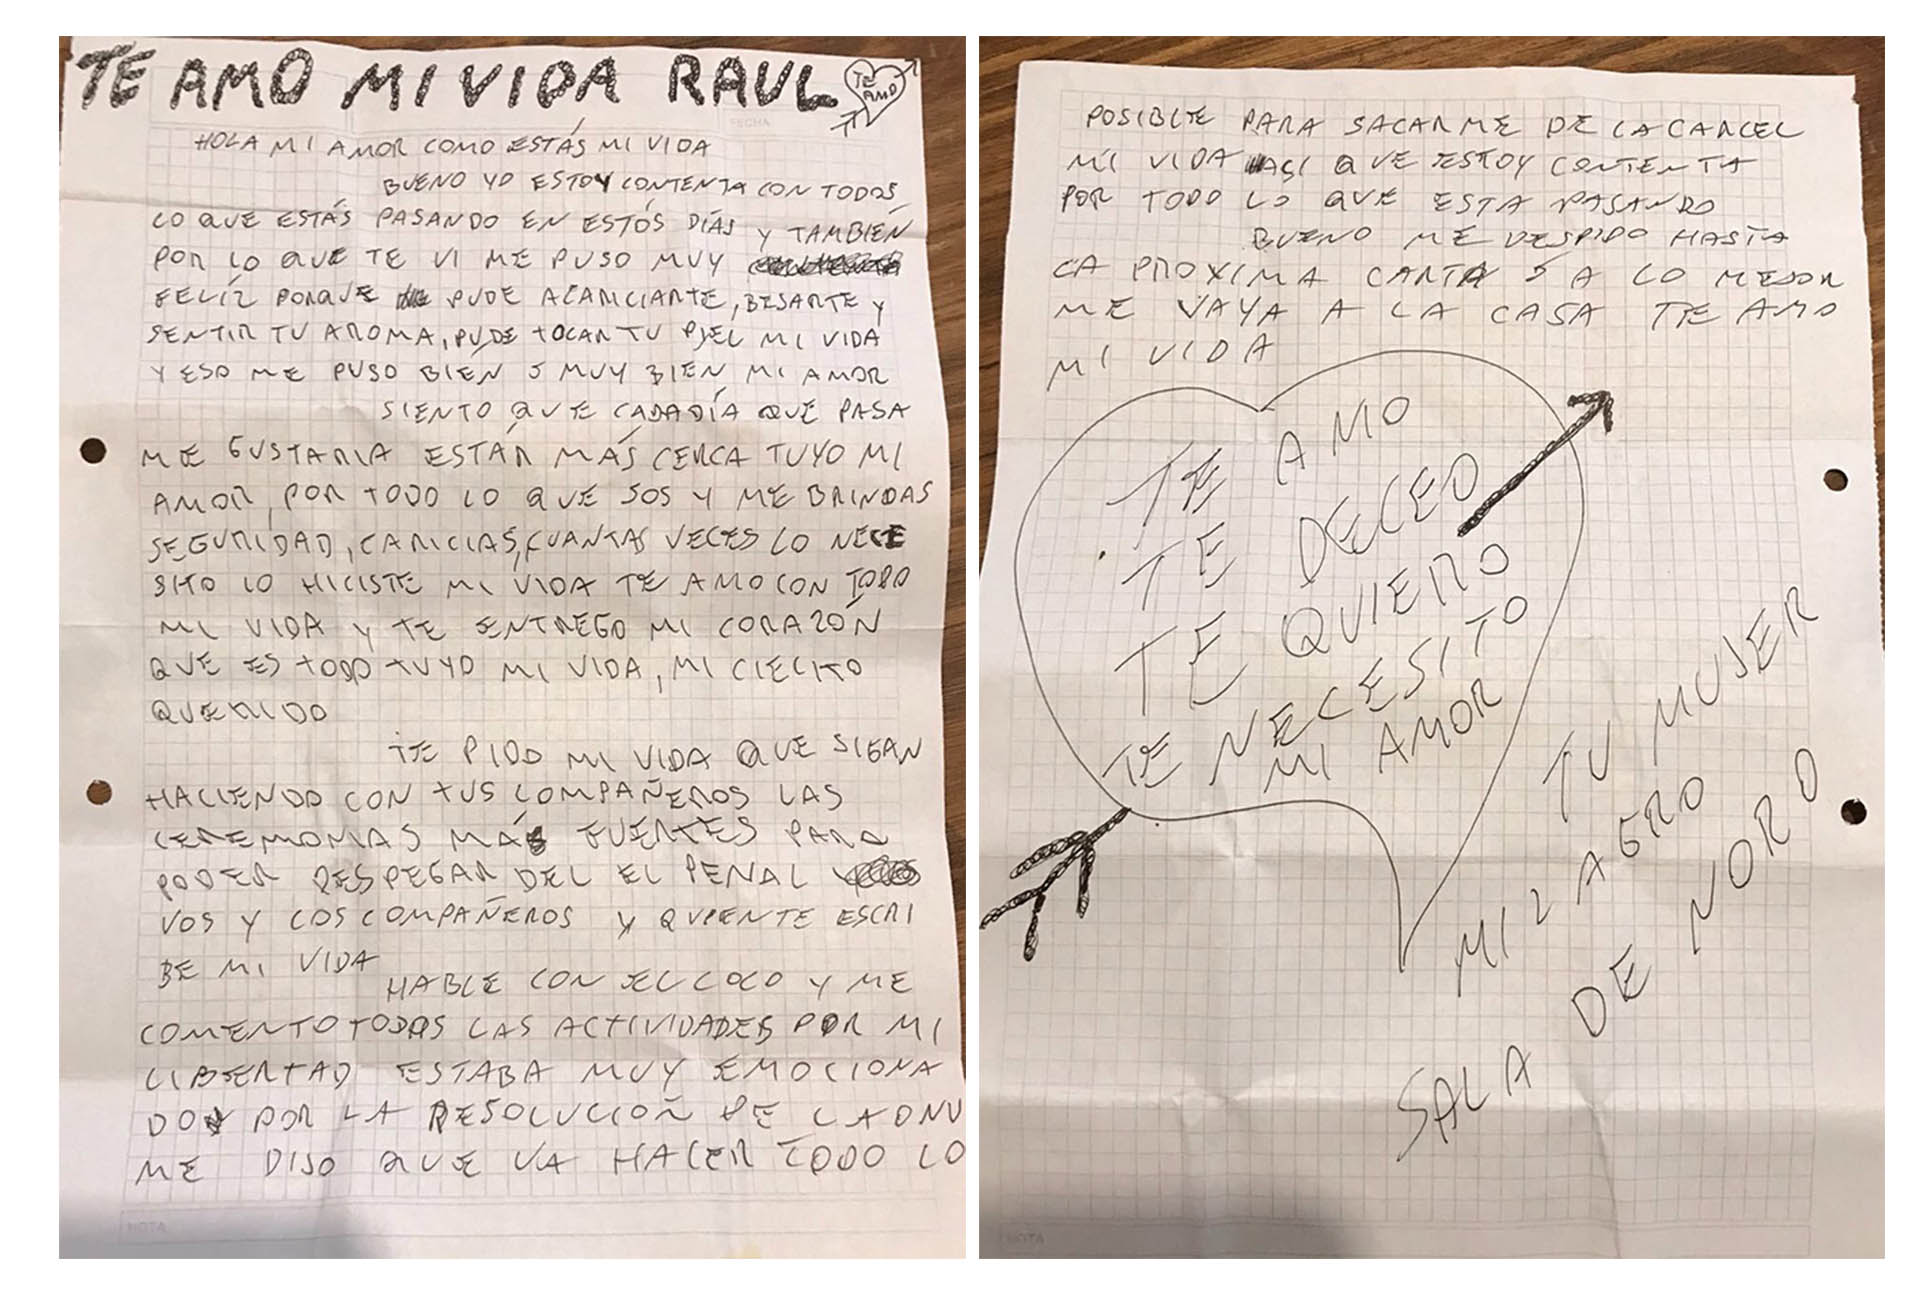 TE AMO MI VIDA RAUL
TE
AMO
FECHA
HOLA MI AMOR COMO ESTÁS MI VIDA
BUENO YO ESTOY CONTENTA CON TODOS
LO QUE ESTÁS PASANDO EN ESTÓS DÍAS Y TAMBIÉN
POR LO QUE TE VI ME PUSO MUY
FELÍZ PORQUE PUDE ACARICIARTE, BESARTE Y
SENTIR TU AROMA, PUDE TOCAR TU PIEL MI VIDA
Y ESO ME PUSO BIÉN Y MUY BIEN MI AMOR
SIENTO QUE CADA DÍA QUE PASA
ME GUSTARIA ESTÁR MÁS CERCA TUYO MI
AMOR, POR TODO LO QUE SOS Y ME BRINDAS
SEGURIDAD, CARICIAS, CUANTAS VECES LO NECE
SITO LO HICISTE MI VIDA TE AMO CON TODO
MI VIDA Y TE ENTREGO MI CORAZÓN
QUE ES TODO TUYO MI VIDA, MI CIELITO
QUERIDO
TE PIDO MI VIDA QUE SIGAN
HACIENDO CON TUS COMPAÑEROS LAS
CEREMONIAS MÁS FUERTES PARA
PODER DESPEGAR DEL EL PENAL
VOS Y LOS COMPAÑEROS Y QUIEN TE ESCRI
BE MI VIDA
HABLE CON EL COCO Y ME
COMENTO TODAS LAS ACTIVIDADES POR MI
LIBERTAD ESTABA MUY EMOCIONA
DO POR LA RESOLUCIOÑ DE LA ONU
ME DIJO QUE VA HACER TODO LO
NOTA
POSIBLE PARA SACARME DE LA CARCEL
MI VIDA ASI QUE ESTOY CONTENTA
POR TODO LO QUE ESTA PASANDO
BUENO ME DESPIDO HASTA
LA PROXIMA CARTA Ó A LO MEJOR
ME VAYA A LA CASA TE AMO
MI VIDA
TE AMO
TE DECEO
TE QUIERO
TE NECESITO
MI AMOR
TU MUJER
MILAGRO
SALA DE NORO
NOTA